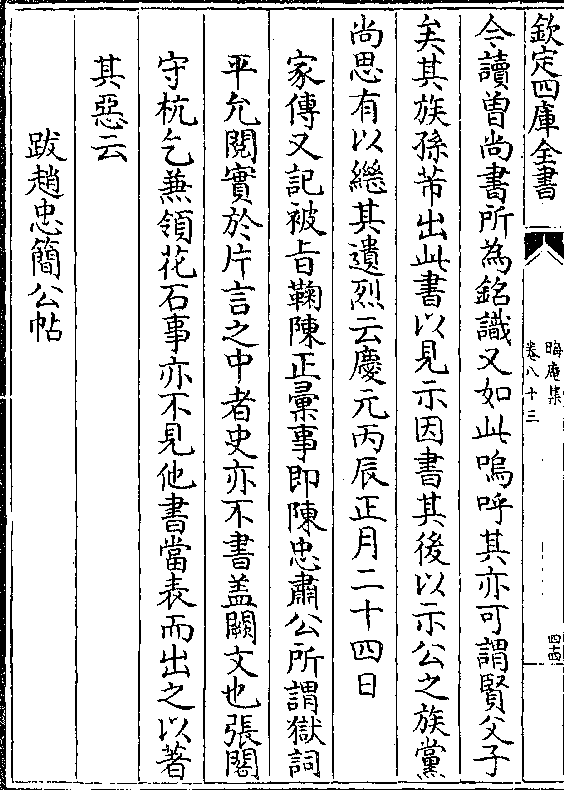 欽定四庫全書
晦庵集
卷八十三
四十四
今讀曽尚書所為銘識又如此嗚呼其亦可謂賢父子
矣其族孫芾出此書以見示因書其後以示公之族黨
尚思有以繼其遺烈云慶元丙辰正月二十四日
家傳又記被㫖鞠陳正彚事即陳忠肅公所謂獄詞
平允閱實於片言之中者史亦不書盖闕文也張閣
守杭乞兼領花石事亦不見他書當表而出之以著
其惡云
跋趙忠簡公帖